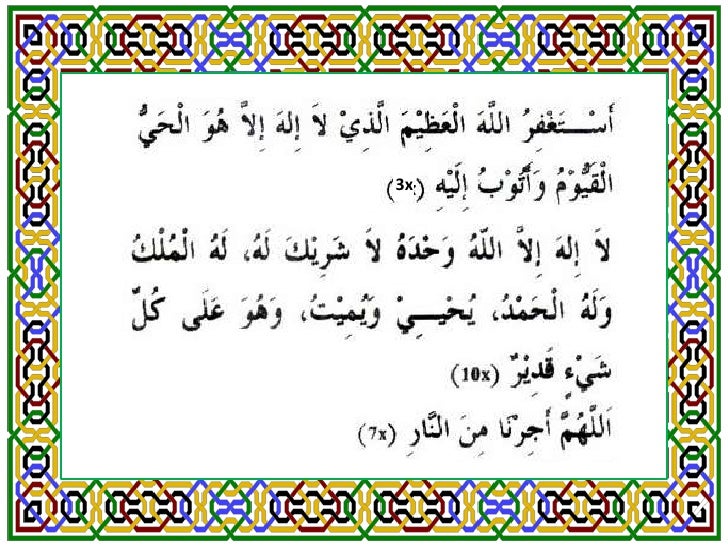 أَسْـــتَغْفِرُ اللَّهَ الْعَظِيْمَ الَّذِيْ لاَ إِلهَ إِلاَّ هُوَ الْحَيُّ
الْقَيُّوْمُ وَأَتُوْبُ إِلَيْهِ (3x)
لاَ إِلهَ إِلاَّ اللّهُ وَحْدَهُ لاَ شَرِيْكَ لَهُ، لَهُ الْمُلْكُ
وَلَهُ الْحَمْدُ، يُحْيِـــيْ وَيُمِيْتُ، وَهُوَ عَلَى كُلِّ
شَيْءٍ قَدِيْرٌ (10x)
اَللَّهُمَّ أَجِرْنَا مِنَ النَّارِ (7x)